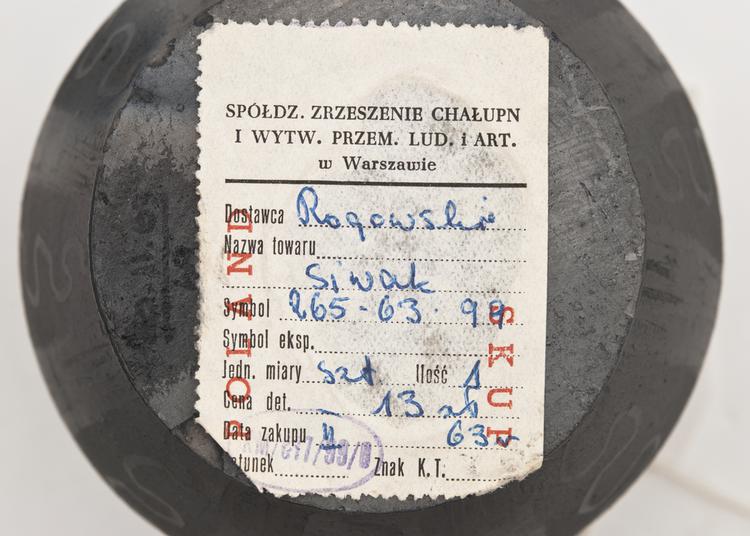 SPÓŁDZ. ZRZESZENIE CHAŁUPN
I WYTW. PRZEM. LUD. i ART.
w Warszawie
Dostawca Rogowski
Nazwa towaru
Siwak
Symbol 265-63.
Symbol eksp.
Jedn. miary szt Ilość 1
Cena det. – 13 zł
Data zakupu II 63r
Gatunek Znak K.T.
POLAND
SKUP